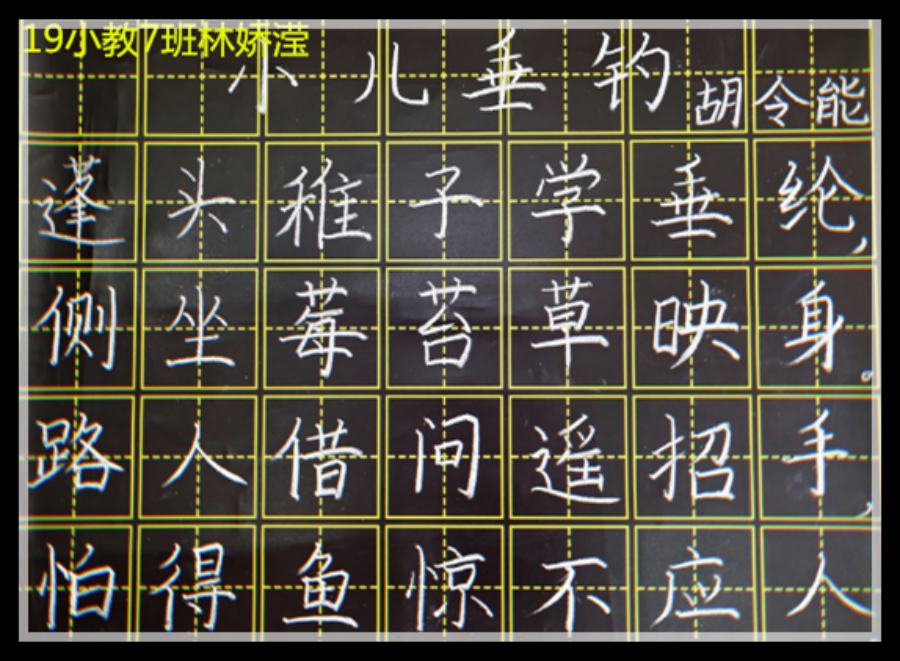 19小教7班林娇滢
小儿垂钓
胡令能
蓬头稚子学垂纶,
侧坐莓苔草映身。
路人借问遥招手,
怕得鱼惊不应人